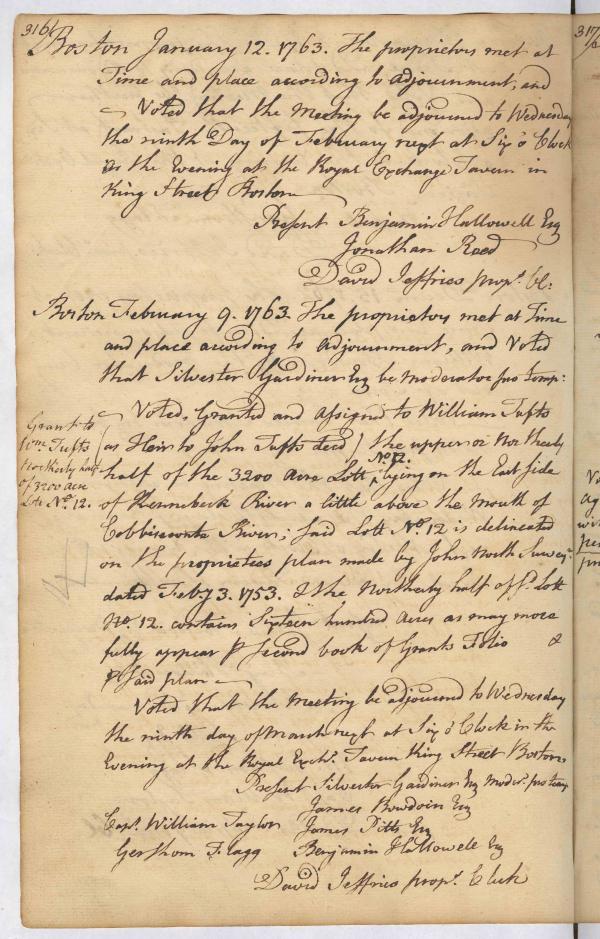 316
Boston January 12. 1763. The proprietors met at
Time and place according to adjournment, and
Voted that the Meeting be adjourned to Wednesday
the ninth Day of February next at Six o Clock
in the Evening at the Royal Exchange Tavern in
King Street Boston
Present Benjamin Hallowell Esq
Jonathan Reed
David Jeffries propr. Cl:
Boston February 9. 1763. The proprietors met at Time
and place according to adjournment, and Voted
that Silvester Gardiner Esq be moderator pro temp:
Voted, Granted and assigned to William Tufts
(as Heir to John Tufts decd) the upper or Northerly
half of the 3200 Acre Lott No. 12. lying on the East side
of Kennebeck River a little above the mouth of
Cobbiseconte River; said Lott No. 12 is delineated
on the proprietees plan made by John North Survey
dated Feby 3. 1753. & the Northerly half of sd. Lott
No. 12. contains Sixteen hundred Acres as may more
fully appear p Second book of Grants Folio &
p said plan
Voted that the Meeting be adjourned to Wednesday
the ninth day of March next at Six o Clock in the
Evening at the Royal Exche. Tavern King Street Boston
Present Silvester Gardiner Esq Modr. pro temp
James Bowdoin Esq
Capt. William Taylor James Pitts Esq
Gershom Flagg Benjamin Hallowell Esq
David Jeffries propr. Clerk
Grant to
Wm. Tufts
Northerly half
of 3200 acre
Lott No. 12.
317